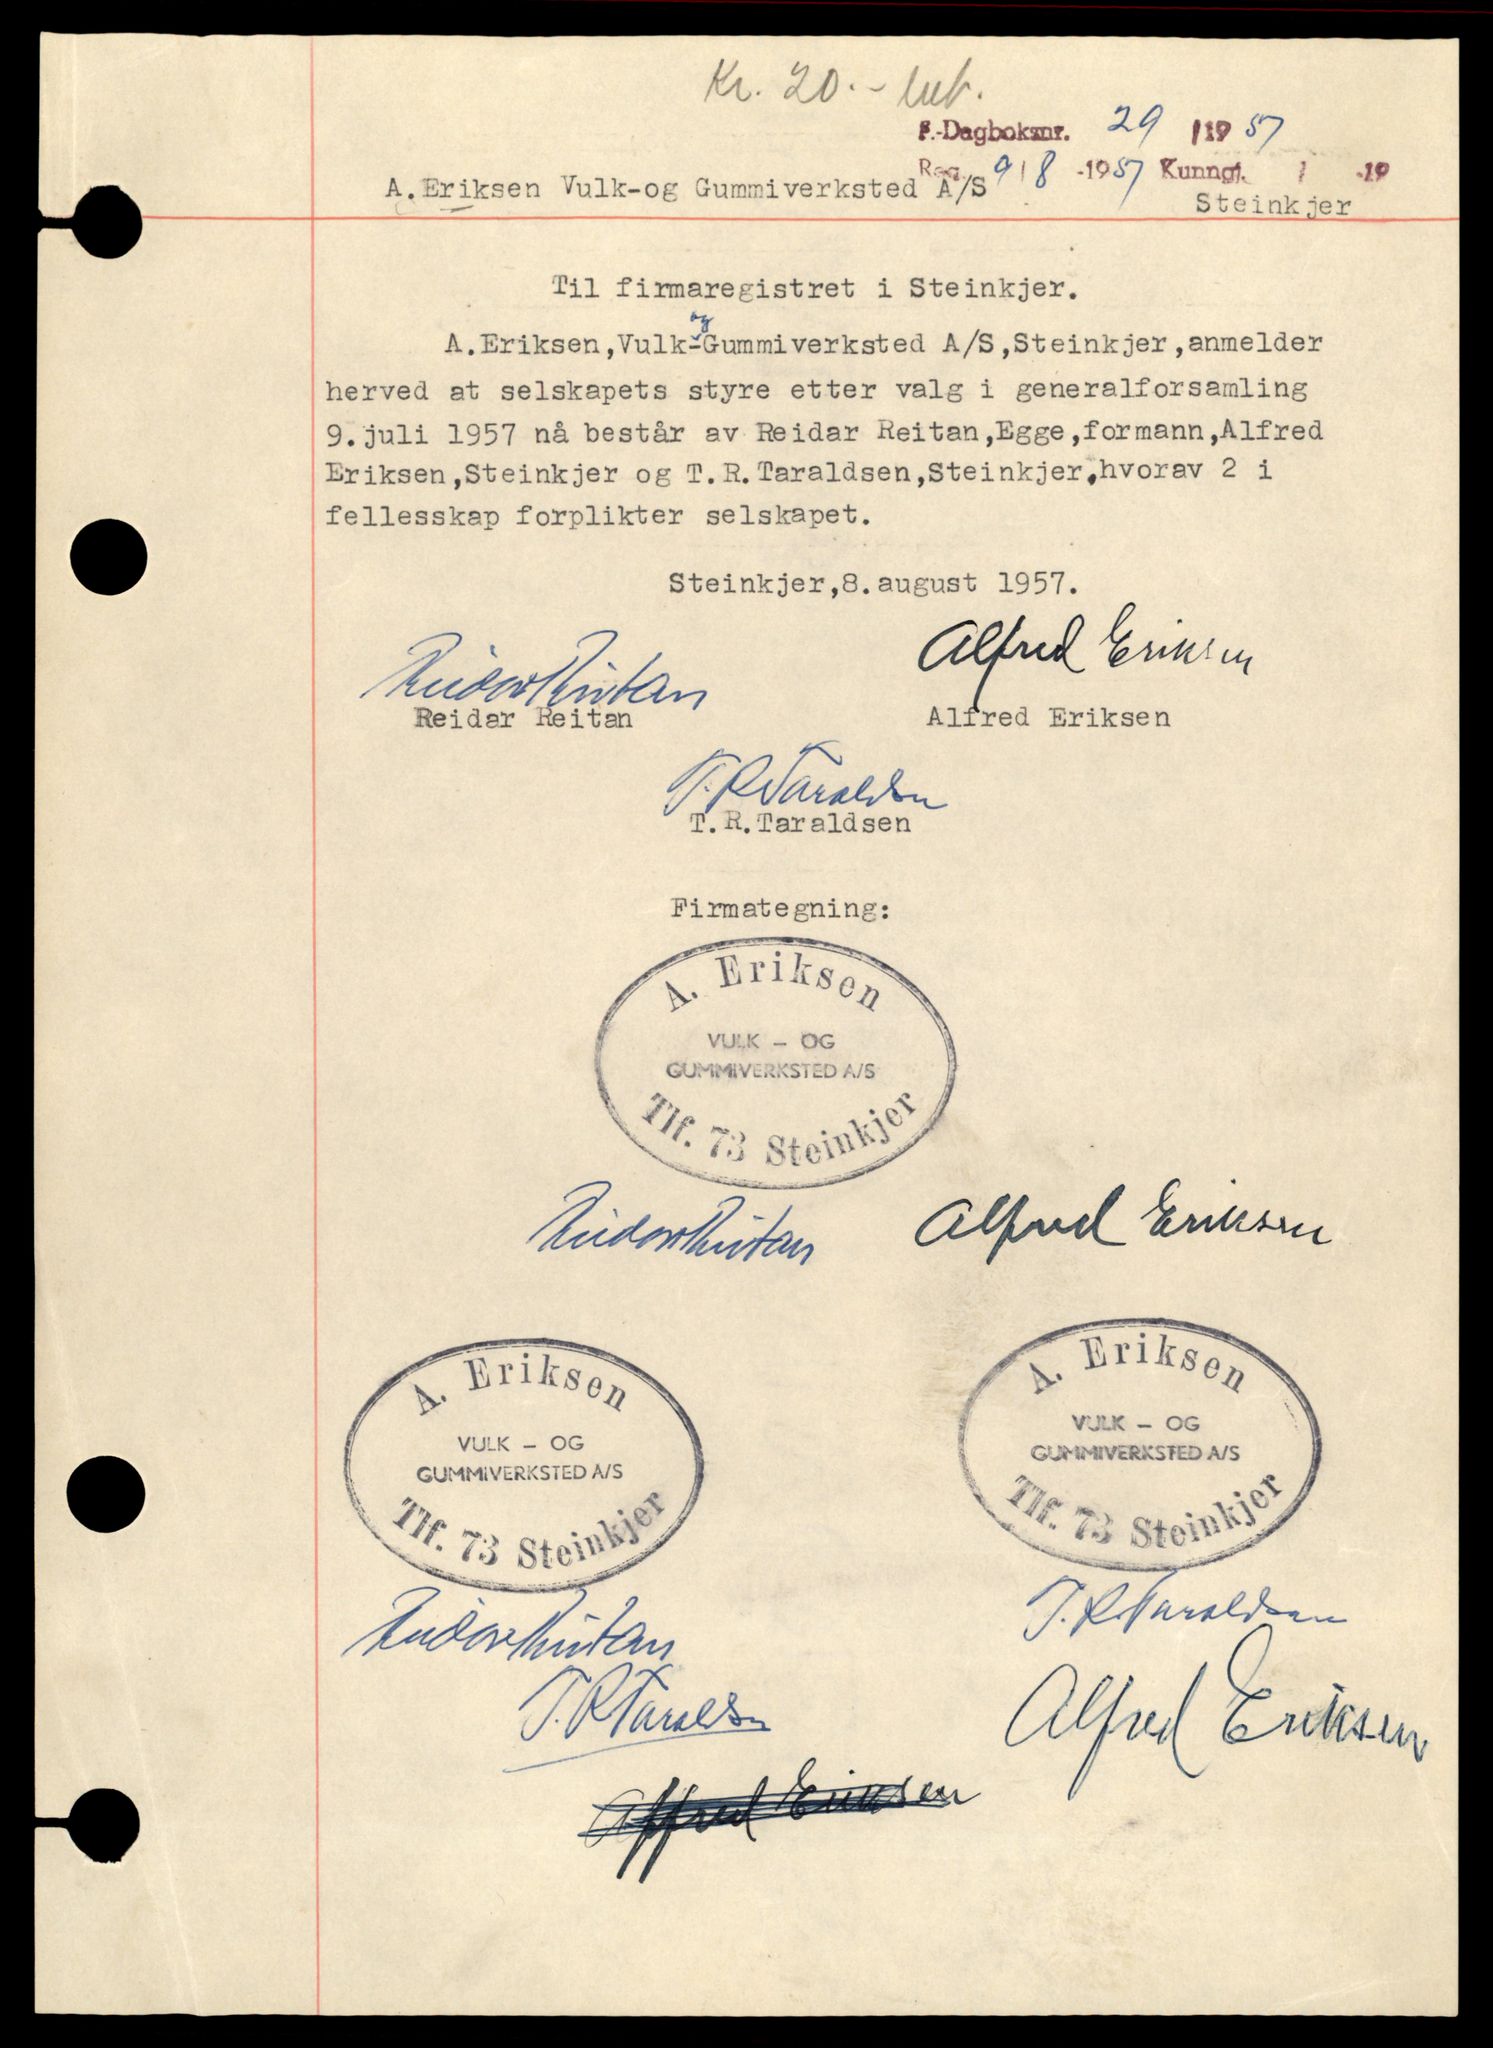 Kr. 20.- bet.
F.-Dagboksnr. 29 /19 57
Reg. 9/8 -1957 Kunngj. / -19
A.Eriksen Vulk-og Gummiverksted A/S
Steinkjer
Til firmaregistret i Steinkjer.
og
A.Eriksen,Vulk-Gummiverksted A/S,Steinkjer,anmelder
herved at selskapets styre etter valg i generalforsamling
9.juli 1957 nå består av Reidar Reitan,Egge,formann,Alfred
Eriksen,Steinkjer og T.R.Taraldsen,Steinkjer,hvorav 2 i
fellesskap forplikter selskapet.
Steinkjer,8.august 1957.
Reidar Reitan
Alfred Eriksen
Reidar Reitan
Alfred Eriksen
T.R.Taraldsen
T.R.Taraldsen
Firmategning:
A. Eriksen
VULK - OG
GUMMIVERKSTED A/S
Tlf. 73 Steinkjer
Reidar Reitan
Alfred Eriksen
A. Eriksen
VULK - OG
GUMMIVERKSTED A/S
Tlf. 73 Steinkjer
A. Eriksen
VULK - OG
GUMMIVERKSTED A/S
Tlf. 73 Steinkjer
Reidar Reitan
T.R.Taraldsen
T.R.Taraldsen
Alfred Eriksen
Alfred Eriksen